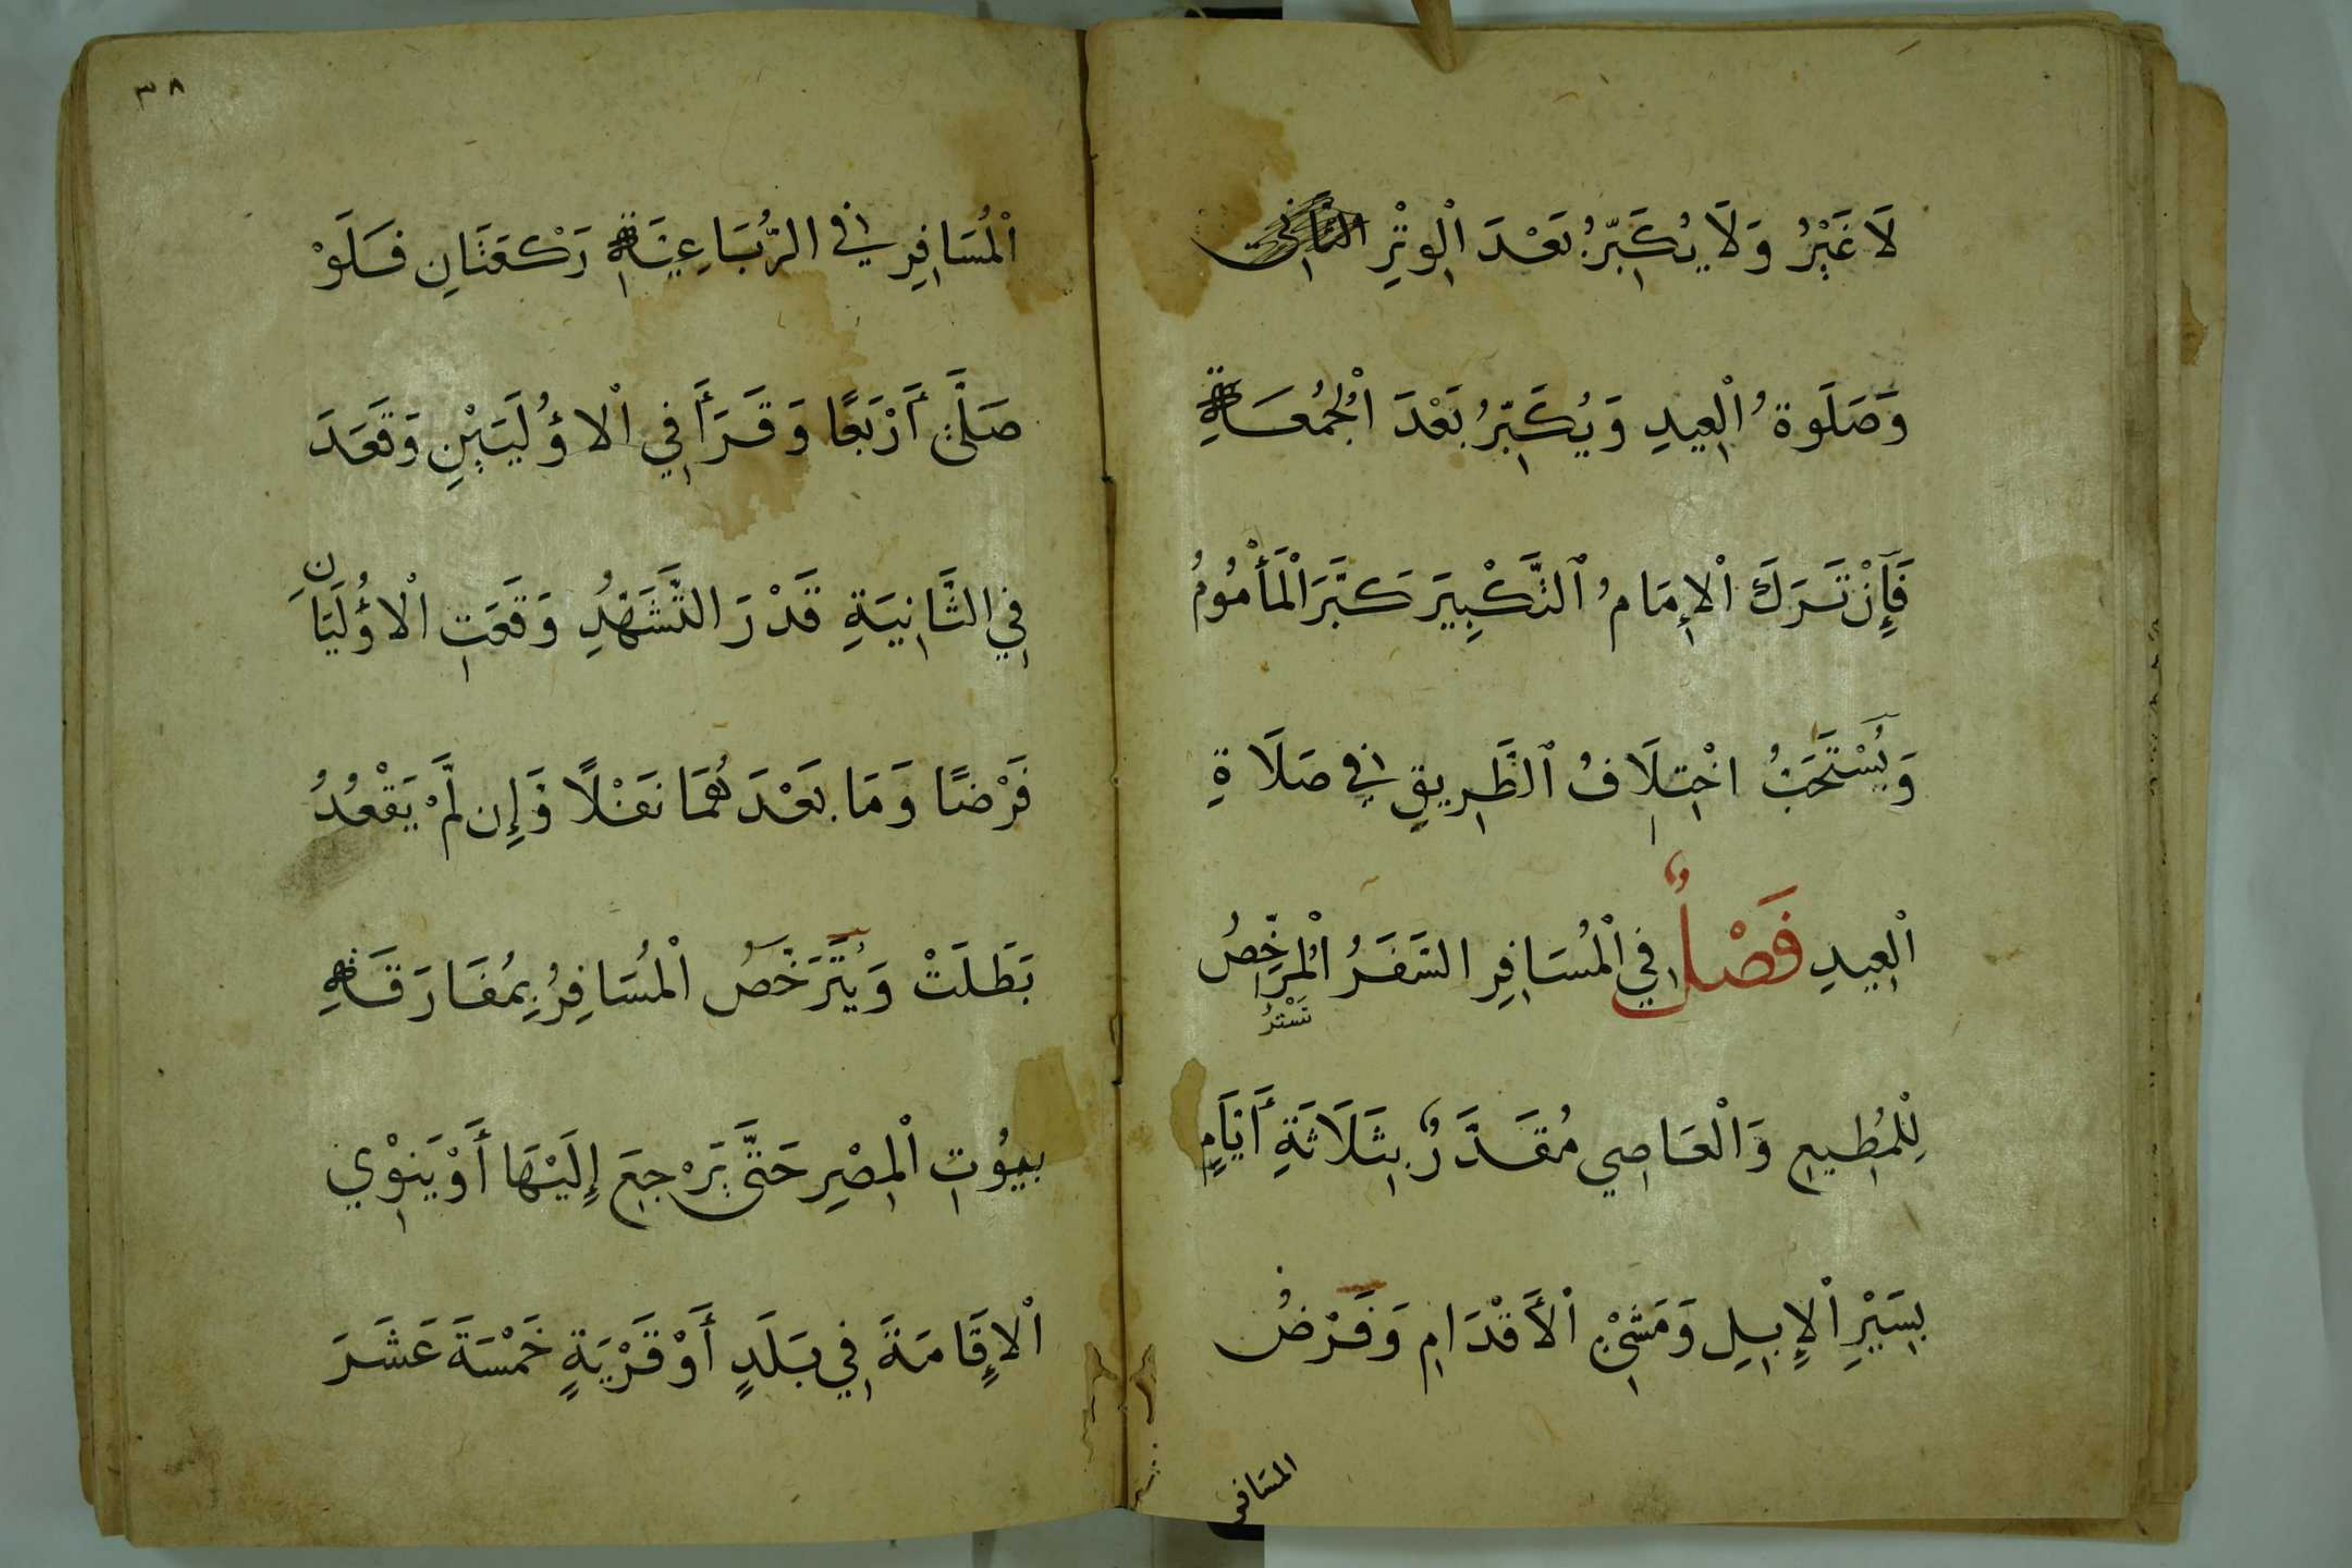 لَا غَيْرُ وَلَا يُكَبِّرُ بَعْدَ الْوِتْرِ
وَصَلَوةُ الْعِيدِ وَيُكَبِّرُ بَعْدَ الْجُمُعَةِ
فَإِنْ تَرَكَ الْإِمَامُ ٱلتَّكْبِيرَ كَبَّرَ الْمَأْمُومُ
وَيُسْتَحَبُّ اخْتِلَافُ ٱلطَّرِيقِ فِي صَلَاةِ
الْعِيدِ فَصْلٌ فِي الْمُسَافِرِ السَّفَرُ الْمُرَخِّصُ
لِلْمُطِيعِ وَالْعَاصِي مُقَدَّرٌ بِثَلَاثَةِ أَيَّامٍ
بِسَيْرِ الْإِبِلِ وَمَشْيِ الْأَقْدَامِ وَفَرْضُ
المسافر
٣٨
الْمُسَافِرِ فِي الرُّبَاعِيَّةِ رَكْعَتَانِ فَلَوْ
صَلَّى أَرْبَعًا وَقَرَأَ فِي الْاُولَيَيْنِ وَقَعَدَ
فِي الثَّانِيَةِ قَدْرَ التَّشَهُّدِ وَقَعَتِ الْاُولَيَانِ
فَرْضًا وَمَا بَعْدَهُمَا نَفْلًا وَإِن لَّمْ يَقْعُدْ
بَطَلَتْ وَيَتَرَخَّصُ الْمُسَافِرُ بِمُفَارَقَةِ
بُيُوتِ الْمِصْرِ حَتَّى يَرْجِعَ إِلَيْهَا أَوْ يَنْوِي
الْإِقَامَةَ فِي بَلَدٍ أَوْ قَرْيَةٍ خَمْسَةَ عَشَرَ